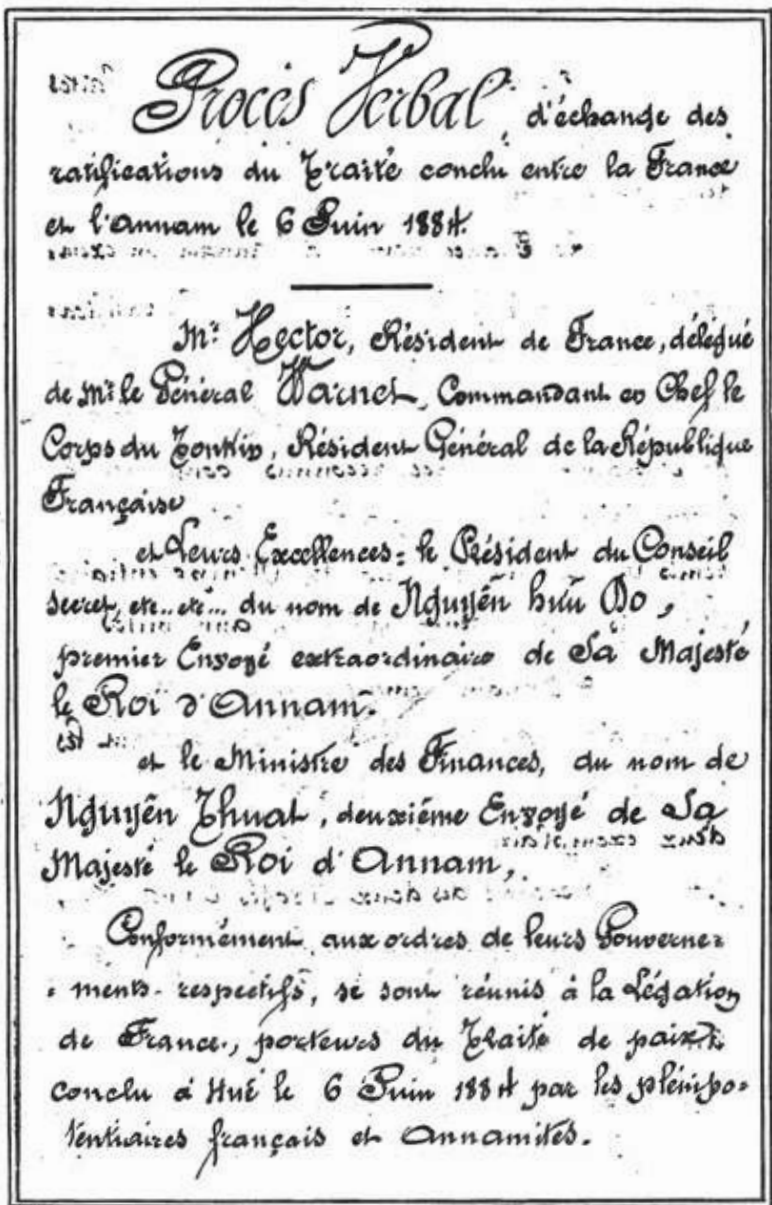 Procès Verbal, d'échange des
ratifications du Traité conclu entre la France
et l'Annam le 6 Juin 1884.
Mr. Hector, Résident de France, délégué
de Mr. le Général Warnet, Commandant en Chef le
Corps du Tonkin, Résident Général de la République
Française
et Leurs Excellences: le Président du Conseil
secret, etc... etc... du nom de Nguyên hưu Do,
premier Envoyé extraordinaire de Sa Majesté
le Roi d'Annam.
et le Ministre des Finances, du nom de
Nguyên Thuat, deuxième Envoyé de Sa
Majesté le Roi d'Annam,
Conformément aux ordres de leurs Gouverne=
=ments respectifs, se sont réunis à la Légation
de France, porteurs du Traité de paix
conclu à Hué le 6 Juin 1884 par les plénipo=
tentiaires français et annamites.